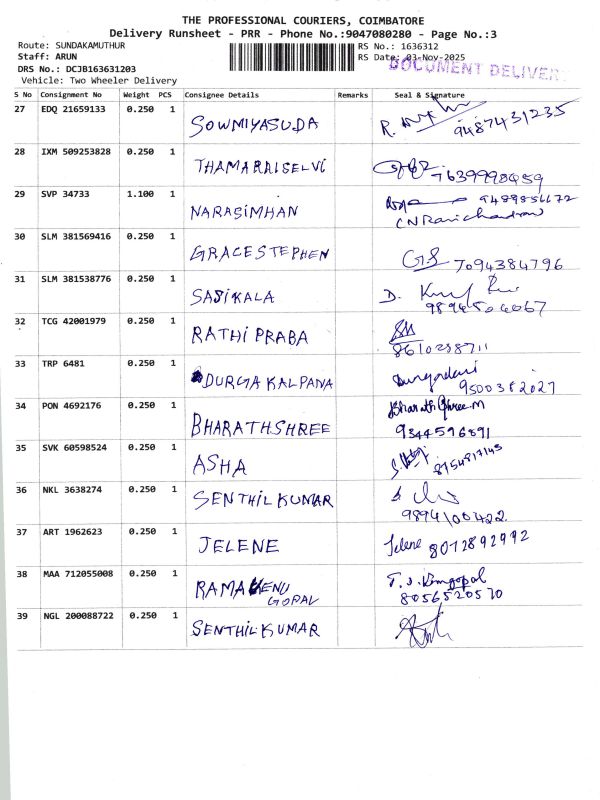 THE PROFESSIONAL COURIERS, COIMBATORE
Delivery Runsheet - PRR - Phone No.:9047080280 - Page No.:3
Route: SUNDAKAMUTHUR RS No.: 1636312
Staff: ARUN RS Date: 03-Nov-2025
DOCUMENT DELIVER
DRS No.: DCJB163631203
Vehicle: Two Wheeler Delivery
S No Consignment No Weight PCS Consignee Details Remarks Seal & Signature
27 EDQ 21659133 0.250 1 SOWMIYASUDA R.
9487431235
28 IXM 509253828 0.250 1 THAMARAISELVI
29 SVP 34733 1.100 1 NARASIMHAN
C N Ravichandran
30 SLM 381569416 0.250 1 GRACESTEPHEN GS 7094384796
31 SLM 381538776 0.250 1 SASIKALA D.
32 TCG 42001979 0.250 1 RATHI PRABA
33 TRP 6481 0.250 1 DURGA KALPANA
9500382027
34 PON 4692176 0.250 1 BHARATHSHREE Bharath Shree.M
9344596891
35 SVK 60598524 0.250 1 ASHA
36 NKL 3638274 0.250 1 SENTHILKUMAR
9894100422
37 ART 1962623 0.250 1 JELENE Jelene 8012892992
38 MAA 712055008 0.250 1 RAMA VENU
GOPAL
8056520570
39 NGL 200088722 0.250 1 SENTHILKUMAR